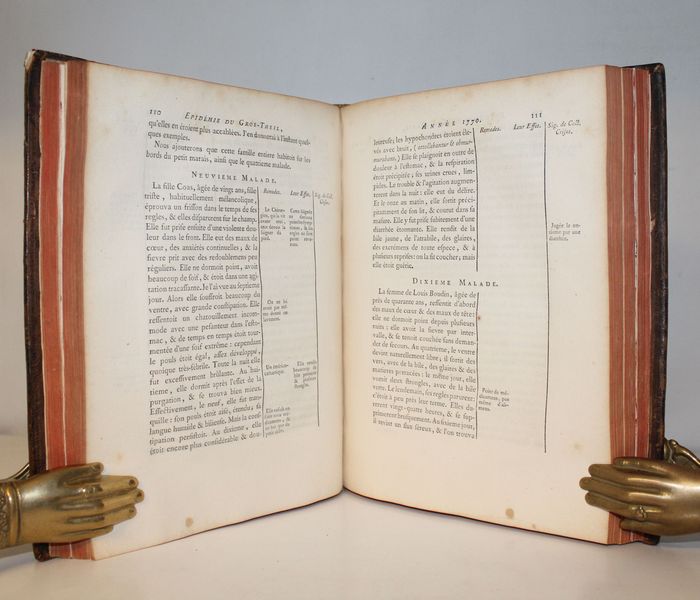 110 EPIDÉMIE DU GROS-THEIL,
qu'elles en étoient plus accablées. J'en donnerai à l'instant quel-
ques exemples.
Nous ajouterons que cette famille entiere habitoit sur les
bords du petit marais, ainsi que le quatrieme malade.
NEUVIEME MALADE.
La fille Coas, âgée de vingt ans, fille
triste, habituellement mélancolique,
éprouva un frisson dans le temps de ses
regles, & elles disparurent sur le champ.
Elle fut prise ensuite d'une violente dou-
leur dans le front. Elle eut des maux de
cœur, des anxiétés continuelles, & la
fievre prit avec des redoublemens peu
réguliers. Elle ne dormoit point, avoit
beaucoup de soif, & étoit dans une agi-
tation tracassante. Je l'ai vue au septieme
jour. Alors elle souffroit beaucoup du
ventre, avec grande constipation. Elle
ressentoit un chatouillement incom-
mode avec une pesanteur dans l'esto-
mac, & de temps en temps étoit tour-
mentée d'une soif extrême: cependant
le pouls étoit égal, assez développé,
quoique très-fébrile. Toute la nuit elle
fut excessivement brûlante. Au hui-
tieme, elle dormit après l'effet de la
purgation, & se trouva bien mieux.
Effectivement, le neuf, elle fut tran-
quille: son pouls étoit aisé, étendu; sa
langue humide & bilieuse. Mais la cons-
tipation persistoit. Au dixieme, elle
étoit encore plus considérable & dou-
Remedes.
Le Chirur-
gien, qu'elle vit
avant moi,
avoit fait une
saignée du
pied.
On ne lui
avoit pas mê-
me donné un
lavement.
Un émético-
cathartique.
Leur Effet.
Cette saignée
Elle rendit
beaucoup de
bile poracée
& plusieurs
strongles.
Sig. de Coct.
Crises.
ANNÉE 1770. 111
loureuse; les hypochondres étoient éle-
vés avec bruit, (attollebantur & obmur-
murabant.) Elle se plaignoit en outre de
douleur à l'estomac, & la respiration
étoit précipitée; ses urines crues, lim-
pides. Le trouble & l'agitation augmen-
terent dans la nuit: elle eut du délire.
Et le onze au matin, elle sortit préci-
pitamment de son lit, & courut dans sa
masure. Elle y fut prise subitement d'une
diarrhée étonnante. Elle rendit de la
bile jaune, de l'atrabile, des glaires,
des excrémens de toute espece, & à
plusieurs reprises: on la fit coucher; mais
elle étoit guérie.
Remedes.
Leur Effet.
Sig. de Coct.
Crises.
Jugée le on-
zieme par une
diarrhée.
DIXIEME MALADE.
La femme de Louis Boudin, âgée de
près de quarante ans, ressentit d'abord
des maux de cœur & des maux de tête:
elle ne dormoit point depuis plusieurs
nuits: elle avoit la fievre par inter-
valle, & se tenoit couchée sans deman-
der de secours. Au quatrieme, le ventre
devint naturellement libre; il sortit des
vers, avec de la bile, des glaires & des
matieres poracées: le même jour, elle
vomit deux strongles, avec de la bile
verte. Le lendemain, ses regles parurent:
c'étoit à peu près leur terme. Elles du-
rerent vingt-quatre heures, & se sup-
primerent brusquement. Au sixieme jour,
il survint un flux séreux, & l'on trouva
Point de mé-
dicament, pas
même d'ali-
mens.